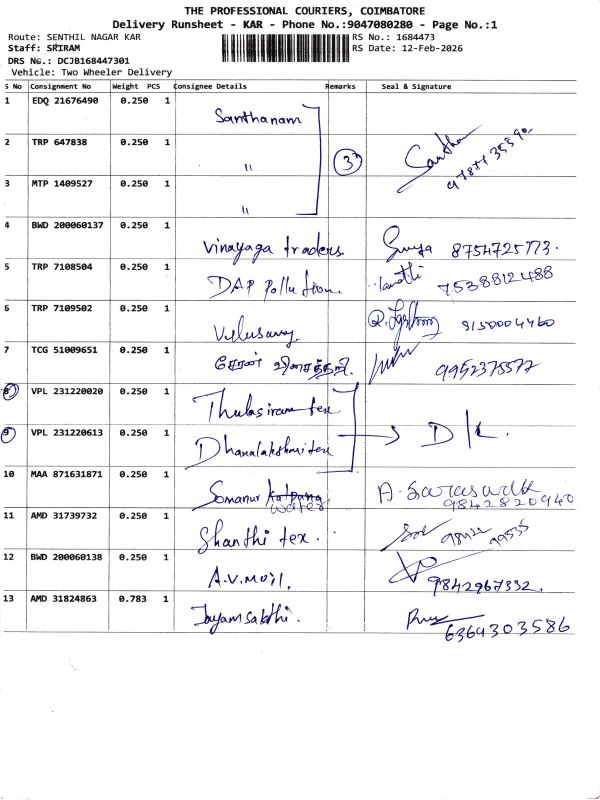 THE PROFESSIONAL COURIERS, COIMBATORE
Delivery Runsheet - KAR - Phone No.:9047080280 - Page No.:1
Route: SENTHIL NAGAR KAR
RS No.: 1684473
Staff: SRIRAM
RS Date: 12-Feb-2026
DRS No.: DCJB168447301
Vehicle: Two Wheeler Delivery
S No Consignment No Weight PCS Consignee Details Remarks Seal & Signature
1 EDQ 21676490 0.250 1 Santhanam
2 TRP 647838 0.250 1 " 3
3 MTP 1409527 0.250 1 "
4 BWD 200060137 0.250 1 Vinayaga traders 8754725773.
5 TRP 7108504 0.250 1 DAP Pollution 7538812488
6 TRP 7109502 0.250 1 Velusamy 9150004460
7 TCG 51009651 0.250 1 9952375577
8 VPL 231220020 0.250 1 Thulasiram tex
9 VPL 231220613 0.250 1 Dhanalakshmi tex → D/L.
10 MAA 871631871 0.250 1 Somanur kalpana water 9842820940
11 AMD 31739732 0.250 1 Shanthi tex.
12 BWD 200060138 0.250 1 A.V.Moil. 9842967332.
13 AMD 31824863 0.783 1 Jayamsakthi. 6364303586